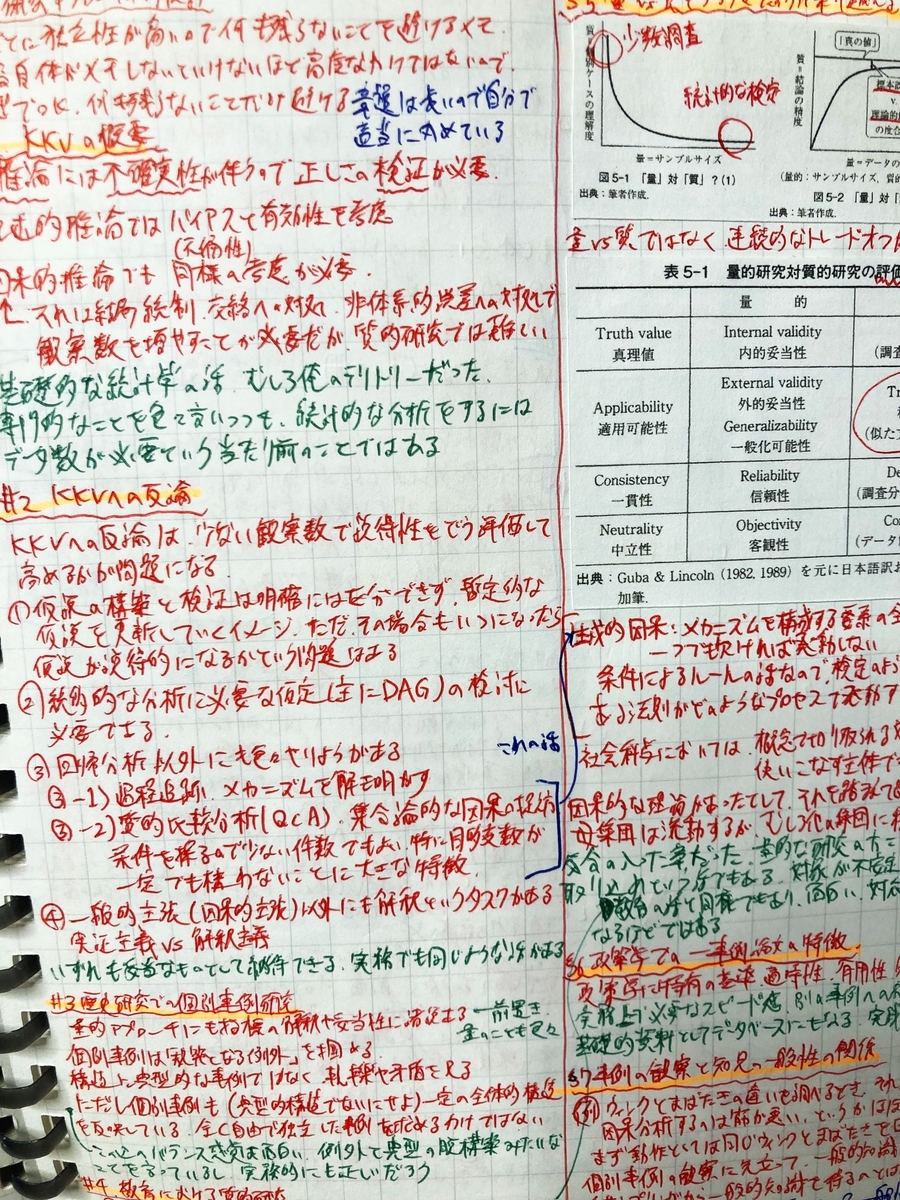 とに独立性が高いので何も残らないことを避けるメモ.
自体がメモしないといけないほど高度なわけではないので.
何も残らないことだけ避ける
章選は長いので自分で
適当に丸めている
KKVの概要
推論には不確実性が伴うので正しさの検証が必要.
述的推論ではバイアスと有効性を考慮
(不偏性)
因果的推論でも同様の考慮が必要.
それは結局統制, 交絡への対処, 非体系的誤差への対処で
観察数を増やすことが必要だが質的研究では難しい
基礎的な統計学の話 むしろ俺のテリトリーだった.
専門的なことを色々言いつつも、統計的な分析をするには
データ数が必要という当たり前のことではある
#2 KKVへの反論
KKVへの反論は、少ない観察数で説得性をどう評価して
高めるかが問題になる.
①仮説の構築と検証は明確には区分できず、暫定的な
仮説を更新していくイメージ. ただ、その場合もいつになったら
仮説が説得的になるかという問題はある
②統計的な分析に必要な仮定(主にDAG)の検討に
必要である.
③回帰分析以外にも色々やりようがある
これの話
③-1)過程追跡. メカニズムを解き明かす
③-2)質的比較分析(QCA). 集合論的な因果の
条件を探るので少ない件数でもよい、特に目的変数が
一定でも構わないことに大きな特徴.
④一般的主張(因果的主張)以外にも解釈というタスクがある
実証主義vs解釈主義
いずれも妥当なものとして納得できる. 実務でも同じような話がある
#3 歴史研究での個別事例研究
量的アプローチにも
前置き
量のことも色々
個別事例は「規則となる例外」を掴める.
構造上典型的な事例ではなく、軋轢や矛盾を見る
ただし個別事例も(典型的構造でないにせよ)一定の全体的構造
を反映している. 全く自由で独立した事例を
このバランス感覚は面白い. 例外と典型の脱構築みたいな
ことを言っているし 実務的にも正しいだろう
#4 教育における質的研究
少数調査
統計的な検定
ケースの理解度
量=サンプルサイズ
図5-1 「量」対「質」?(1)
出典:筆者作成.
「真の値」
質=結論の精度
標本
v.
理論的
の度合
量=データの
(量的:サンプルサイズ, 質的
図5-2 「量」対「
出典:筆者作成.
量vs質ではなく 連続的なトレードオフ
表 5-1 量的研究対質的研究の評価
量 的
Truth value
真理値
Internal validity
内的妥当性
(調査
Applicability
適用可能性
External validity
外的妥当性
Generalizability
一般化可能性
Tr
(似た
Consistency
一貫性
Reliability
信頼性
De
(調査分
Neutrality
中立性
Objectivity
客観性
Co
(データ
出典:Guba & Lincoln (1982, 1989) を元に日本語訳
加筆.
生成的因果:メカニズムを構成する要素の全
一つでも欠ければ発動しない
条件によるルールの話なので、検定のよう
ある法則がどのようなプロセスで発動す
社会科学においては、概念で切り取られる
使いこなす主体で
因果的な理論があったとして、それを踏まえて
母集団は流動するが、むしろ他の原因に
気合の入った章だった. 量的な研究の方に
取り入れという話でもある. 対象が不安定
面白い. 対応
なるほどではある
§6 政策学での一事例論文の特徴.
政策学に特有の基準、適時性、有用性
実務上で必要なスピード感. 別の事例への
基礎的資料としてデータベースにもなる. 実践
§7 事例の観察と知見の一般性の関係
例 ウィンクとまばたきの違いを調べるとき、それ
因果分析するのは筋が悪い、というかほぼ
まず動作としては同じウィンクとまばたきを
個別事例の観察に先立って、一般的知識
一般的知識を得ることは